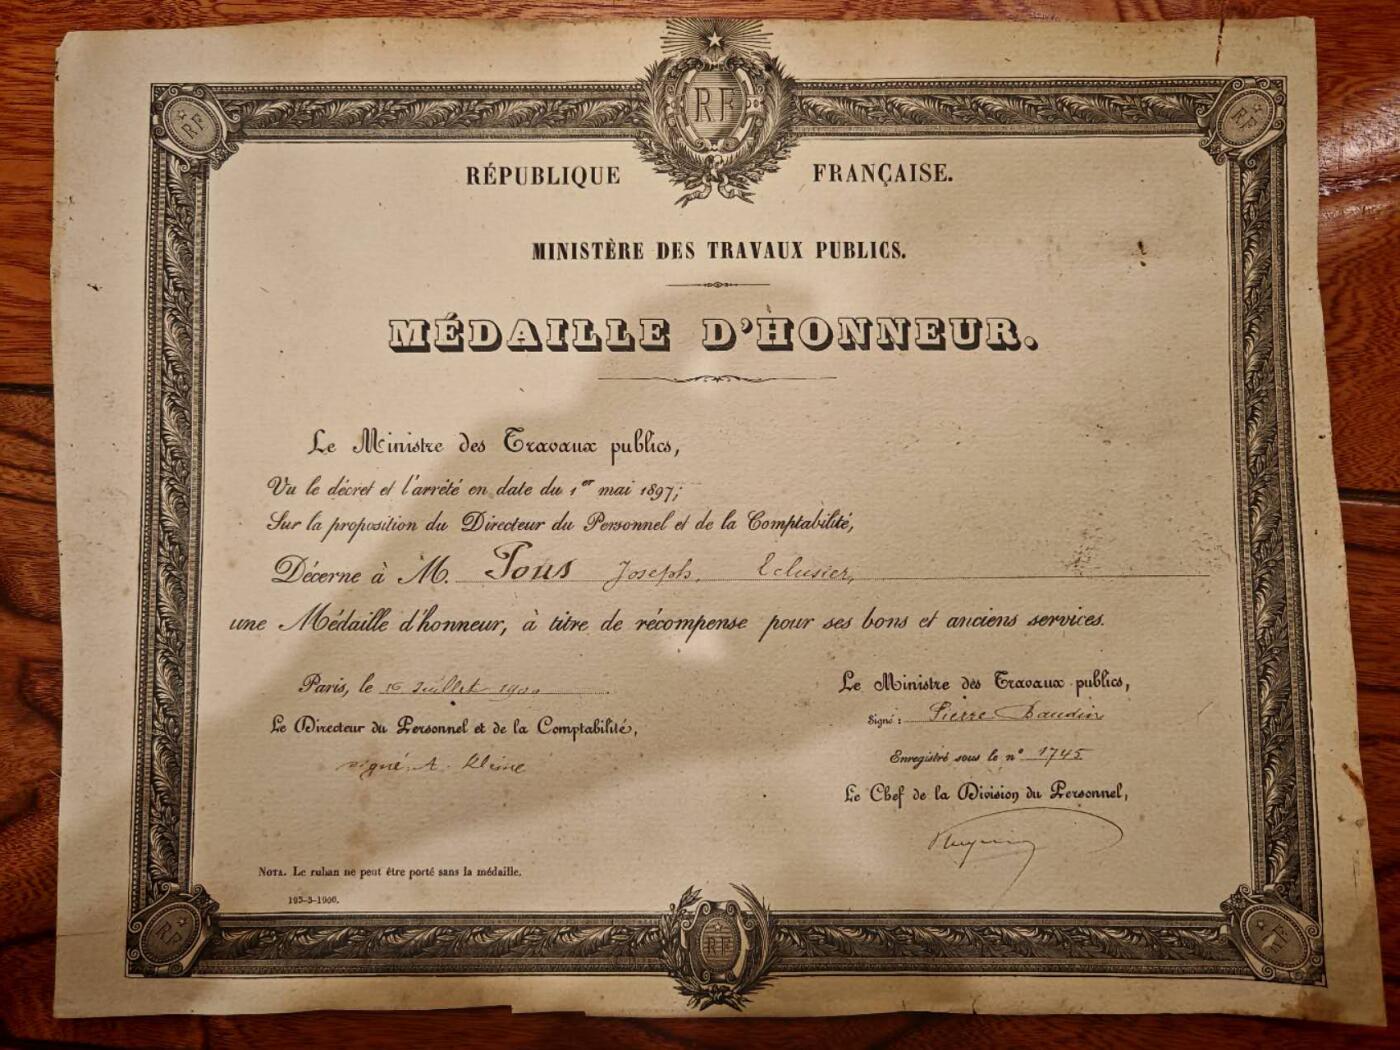 RF
RF
RF
RÉPUBLIQUE FRANÇAISE.
MINISTÈRE DES TRAVAUX PUBLICS.
MÉDAILLE D'HONNEUR.
Le Ministre des Travaux publics,
Vu le décret et l'arrêté en date du 1er mai 1897;
Sur la proposition du Directeur du Personnel et de la Comptabilité,
Décerne à M. Pous Joseph, Eclusier,
une Médaille d'honneur, à titre de récompense pour ses bons et anciens services.
Paris, le 16 Juillet 1900
Le Directeur du Personnel et de la Comptabilité,
signé A. Kleine
Le Ministre des Travaux publics,
Signé: Pierre Baudin
Enregistré sous le n° 1745
Le Chef de la Division du Personnel,
NOTA. Le ruban ne peut être porté sans la médaille.
193-3-1900.
RF
RF
RF